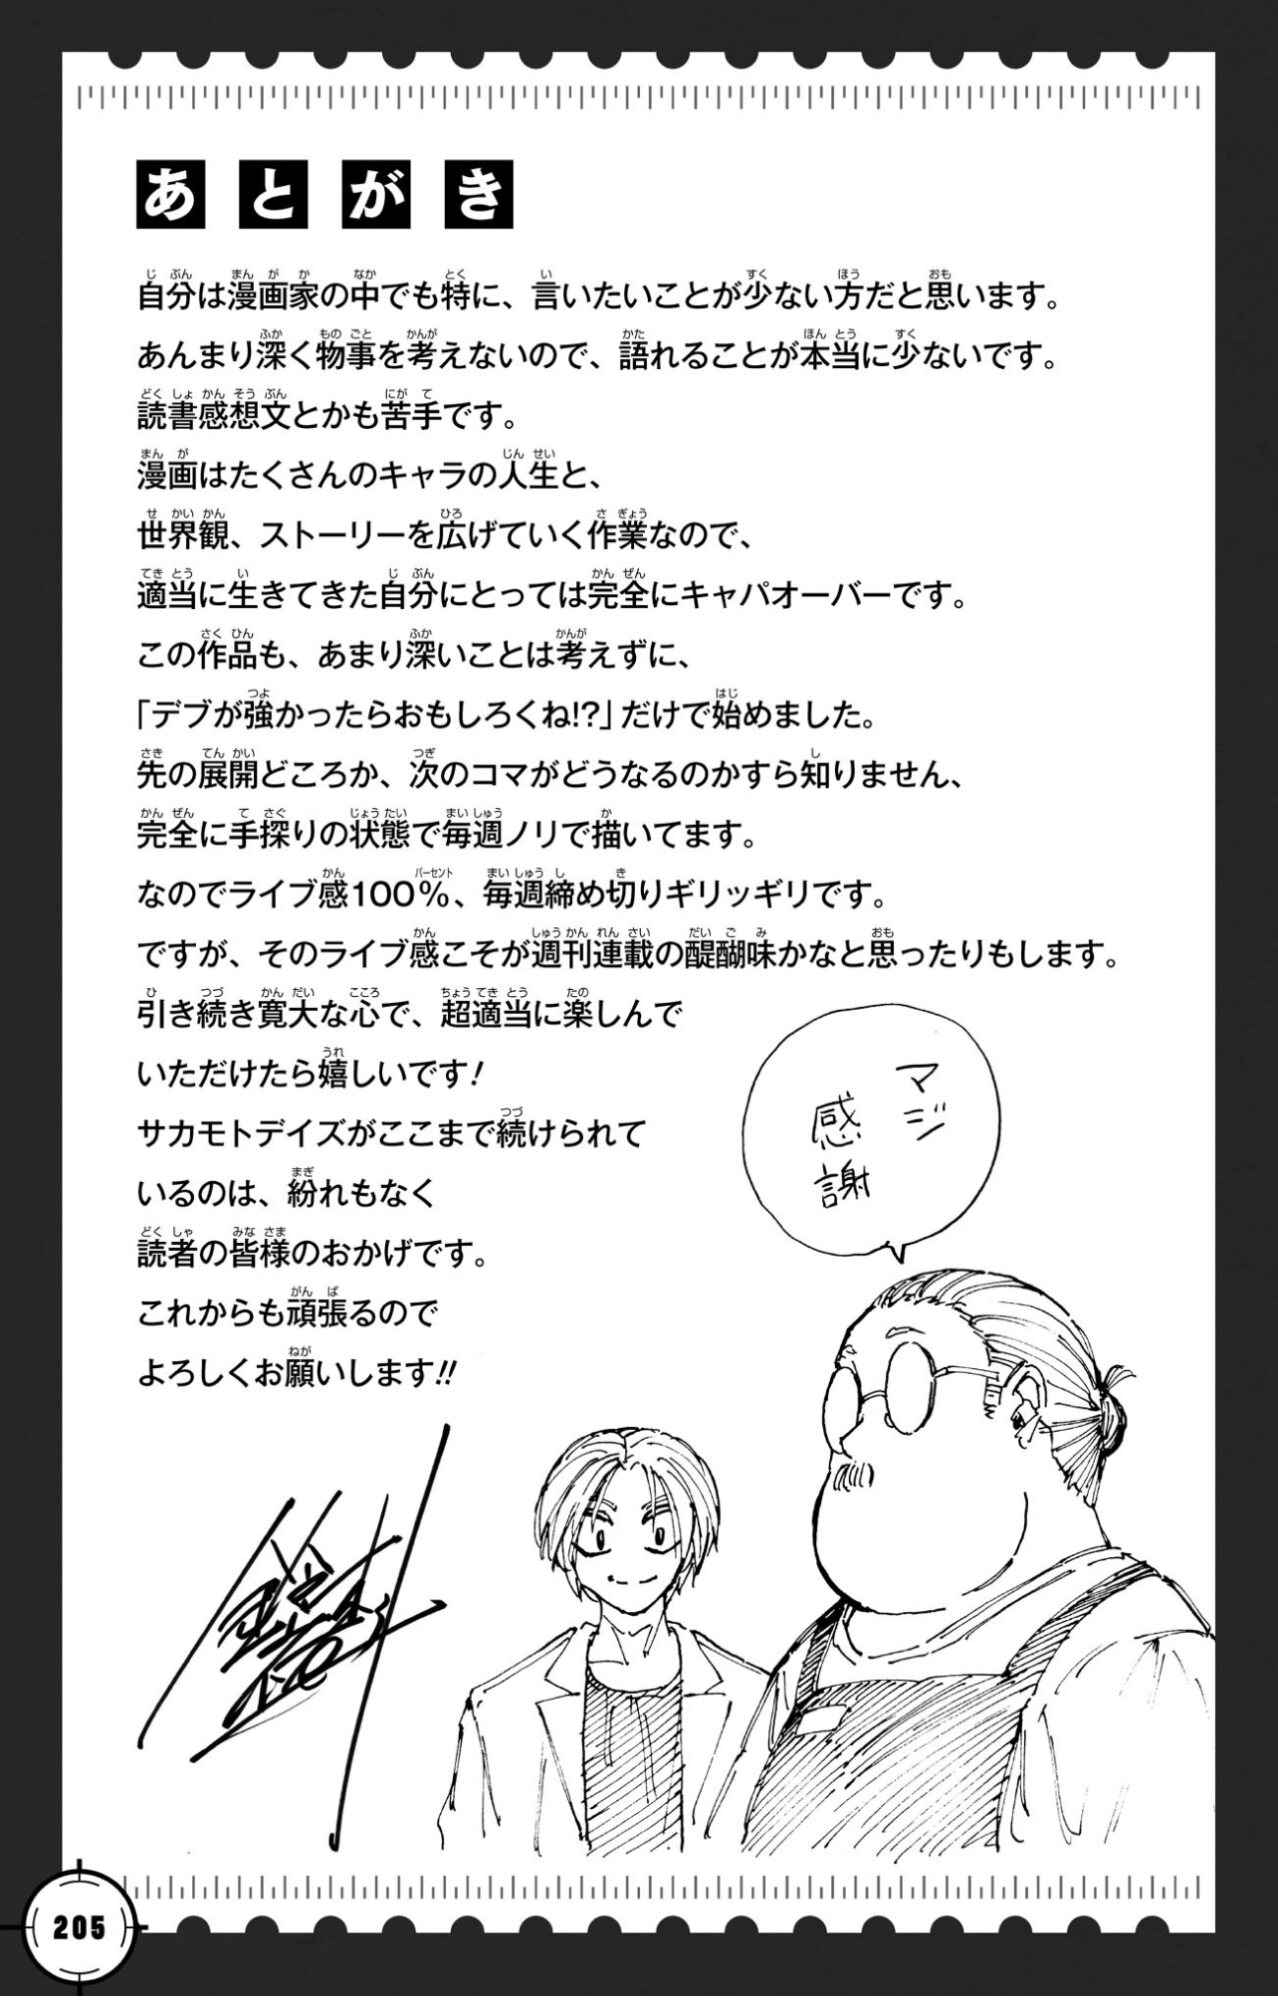 あとがき
自分は漫画家の中でも特に、言いたいことが少ない方だと思います。
あんまり深く物事を考えないので、語れることが本当に少ないです。
読書感想文とかも苦手です。
漫画はたくさんのキャラの人生と、
世界観、ストーリーを広げていく作業なので、
適当に生きてきた自分にとっては完全にキャパオーバーです。
この作品も、あまり深いことは考えずに、
「デブが強かったらおもしろくね!?」だけで始めました。
先の展開どころか、次のコマがどうなるのかすら知りません、
完全に手探りの状態で毎週ノリで描いてます。
なのでライブ感100%、毎週締め切りギリッギリです。
ですが、そのライブ感こそが週刊連載の醍醐味かなと思ったりもします。
引き続き寛大な心で、超適当に楽しんで
いただけたら嬉しいです!
サカモトデイズがここまで続けられて
いるのは、紛れもなく
読者の皆様のおかげです。
これからも頑張るので
よろしくお願いします!!
マジ
感謝
205